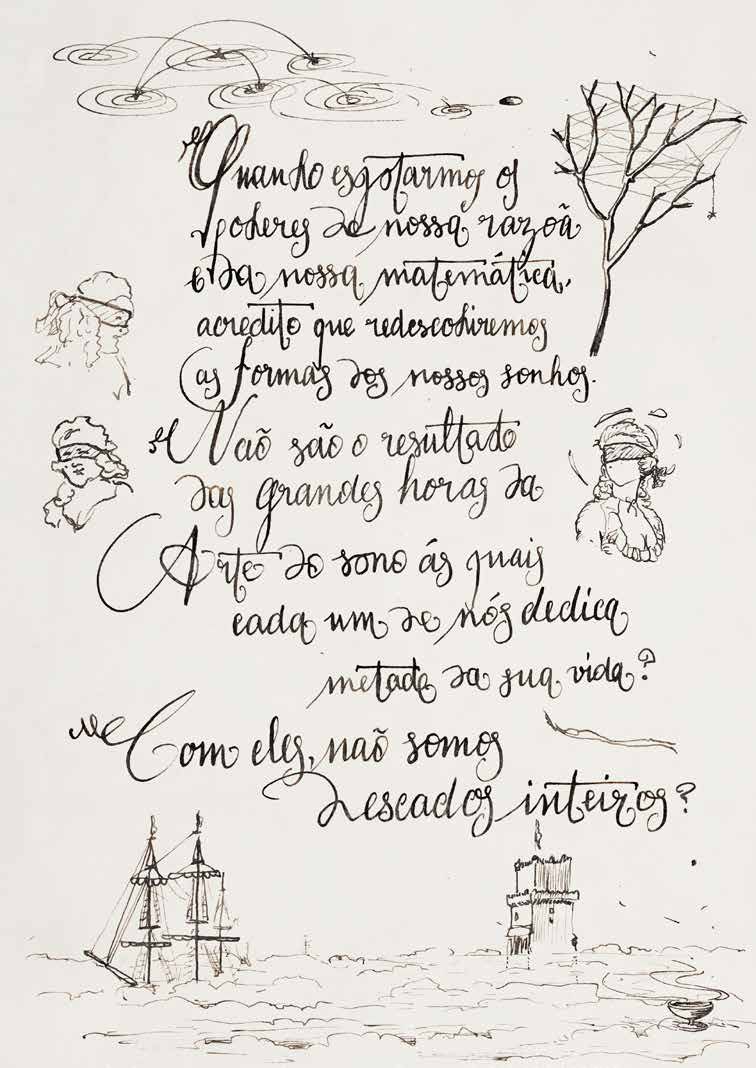 "Quando esgotarmos os
poderes de nossa razoã
e da nossa matemática,
acredito que redescobriremos
as formas dos nossos sonhos.
"Naõ são o resultado
das grandes horas da
Arte do sono ás quais
cada um de nós dedica
metade da sua vida?
"Com eles, naõ somos
inteiros?